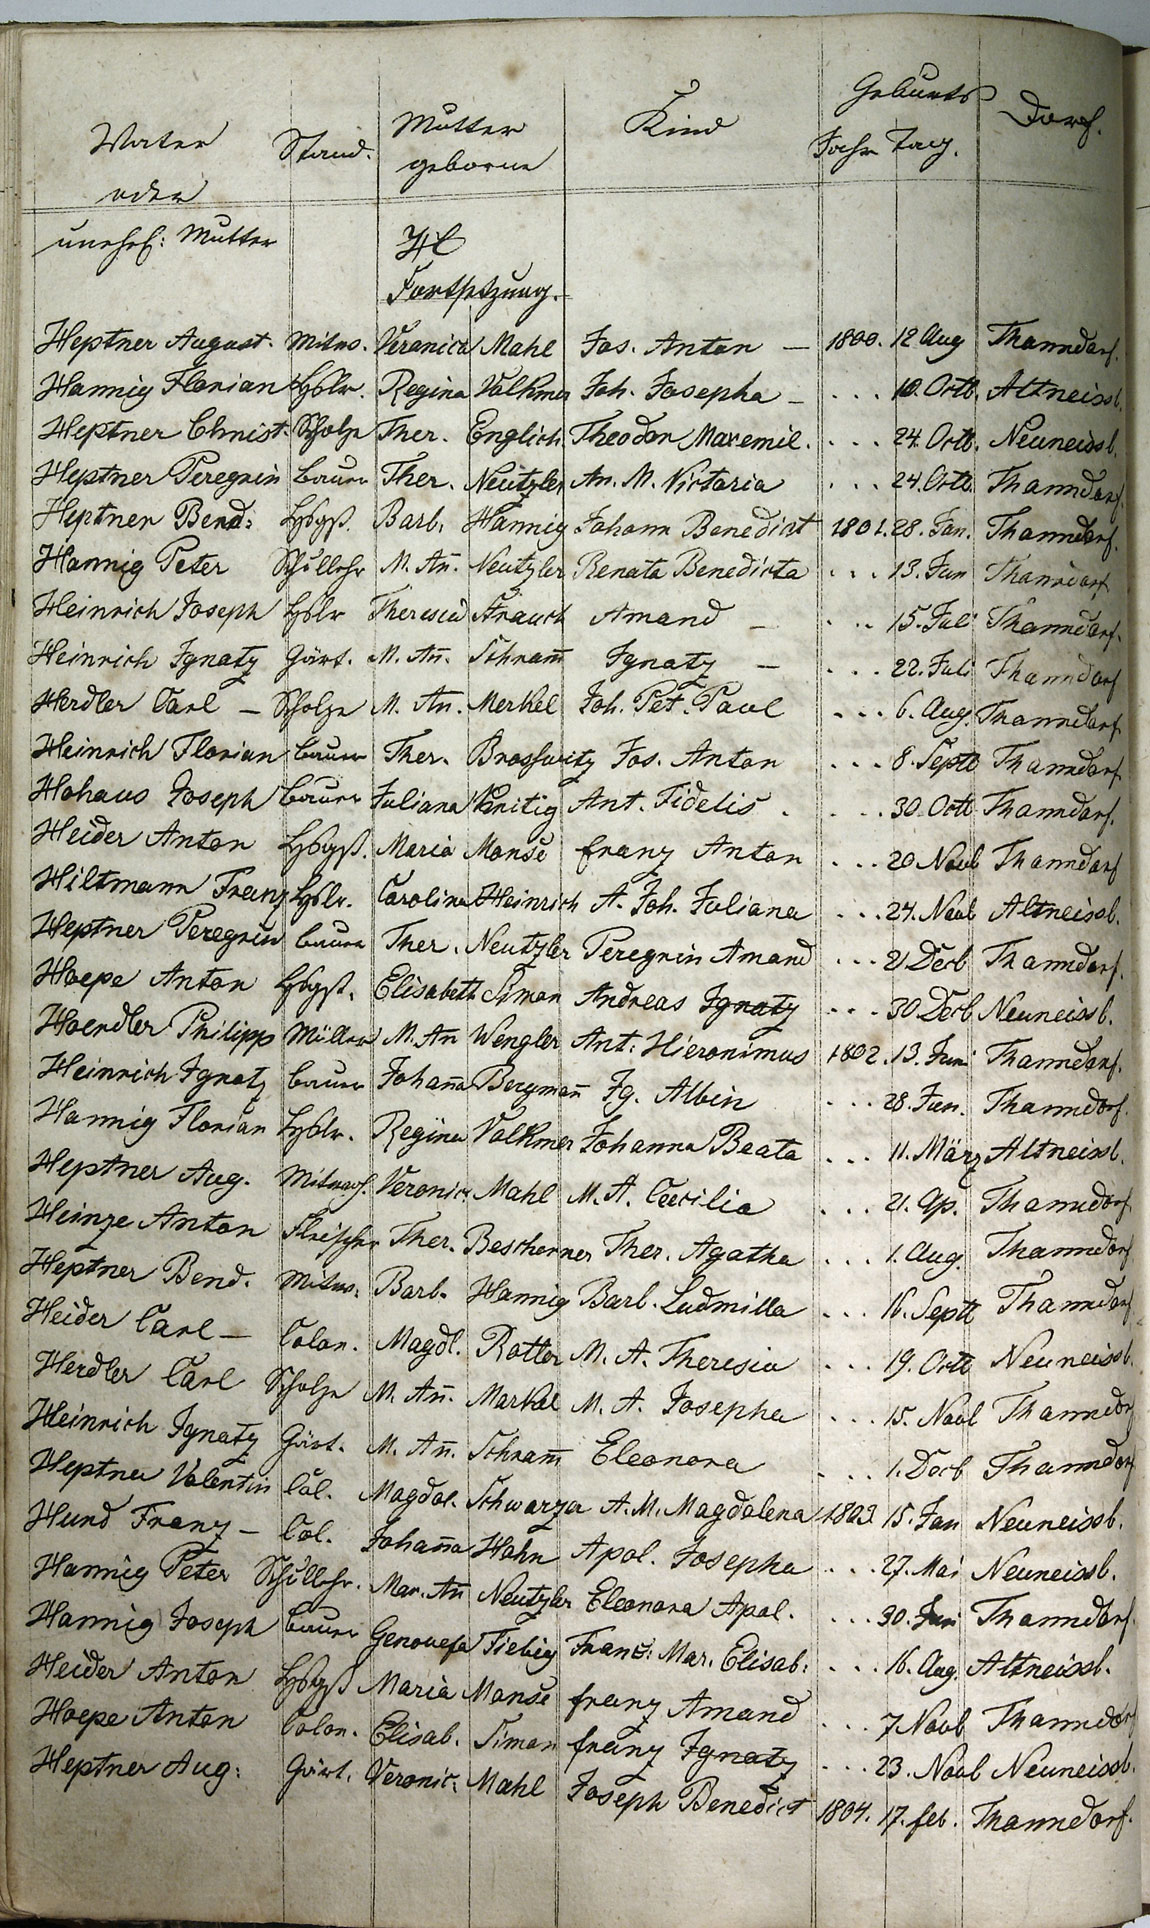 Vater Stand. Mutter Kind Geburts Dorf.
oder geborne Jahr Tag.
unehel: Mutter H
Fortsetzung.
Heptner August. Mitw. Veronica Mahl Jos. Anton — 1800. 12 Aug Thanndorf.
Hannig Florian Hslr. Regina Volkmer Joh. Josepha — ... 10. Octb. Altneissb.
Heptner Christ. Scholze Ther. Englich Theodor Maxemil. ... 24. Octb. Neuneissb.
Heptner Peregrin bauer Ther. Neutzler An. M. Victoria ... 24. Octb. Thanndorf.
Heptner Bend: Hsbgß. Barb. Hannig Johann Benedict 1801. 28. Jan. Thanndorf.
Hannig Peter Schullehr M. An̄. Neutzler Renata Benedicta ... 13. Jun Thanndorf
Heinrich Joseph Hslr Theresia Strauch Amand — ... 15. Juli Thanndorf.
Heinrich Ignatz Gärt. M. An̄. Schram̄ Ignatz — ... 22. Juli Thanndorf
Herdler Carl — Scholze M. An. Merkel Joh. Pet. Paul ... 6. Aug. Thanndorf
Heinrich Florian bauer Ther. Brosswitz Jos. Anton ... 8. Septb Thanndorf
Hohaus Joseph bauer Juliana Ant. Fidelis. ... 30. Octb Thanndorf.
Heider Anton Hsbgß. Maria Monse franz Anton ... 20 Novb Thanndorf
Hiltmann Franz Hslr. Carolina Heinrich A. Joh. Juliana ... 24. Novb Altneissb.
Heptner Peregrin bauer Ther. Neutzler Peregrin Amand ... 21 Decb Thanndorf.
Hoepe Anton Hsbgß. Elisabeth Simon Andreas Ignatz ... 30 Decb Neuneissb.
Hoerdler Philipp Müller M. An Wengler Ant: Hieronimus 1802. 13. Thanndorf.
Heinrich Ignatz bauer Johan̄a Bergman̄ Ig. Albin ... 28. Jun. Thanndorf.
Hannig Florian Hslr. Regina Volkmer Johanna Beata ... 11. März Altneissb.
Heptner Aug. Mitw. Veronic. Mahl M. A. Caecilia ... 21. Ap. Thanndorf
Heinze Anton Fleischer Ther. Bescherner Ther. Agatha ... 1. Aug. Thanndorf
Heptner Bend. Mitw. Barb. Hannig Barb. Ludmilla ... 16. Septb Thanndorf
Heider Carl — Colon. Magdl. Rotter M. A. Theresia ... 19. Octb Neuneissb.
Herdler Carl Scholze M. An̄. Markel M. A. Josepha ... 15. Novb Thanndorf
Heinrich Ignatz Gärt. M. An̄. Schram̄ Eleonora ... 1. Decb Thanndorf
Heptner Valentin Col. Magdal. Schwarzer A. M. Magdalena 1803 15. Jan Neuneissb.
Hund Franz — Col. Johan̄a Hahn Apol. Josepha ... 27. Mai Neuneissb.
Hannig Peter Schullehr. Mar. An̄ Neutzler Eleonora Apol. ... 30. Thanndorf.
Hannig Joseph bauer Genovefa Fiebig Franc: Mar. Elisab: ... 16. Aug. Altneissb.
Heider Anton Hsbgß Maria Monse franz Amand ... 7 Novb Thanndorf
Hoepe Anton Colon. Elisab. Simon franz Ignatz ... 23. Novb Neuneissb.
Heptner Aug: Gärt. Veronic: Mahl Joseph Benedict 1804. 17. feb. Thanndorf.